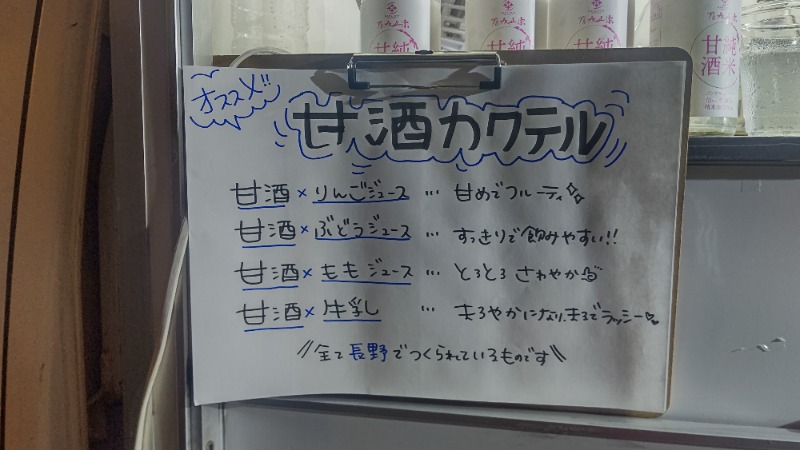 純米
甘酒
オススメ!!
甘酒カクテル
甘酒×りんごジュース … 甘めでフルーティ
甘酒×ぶどうジュース … すっきりで飲みやすい!!
甘酒×ももジュース … とろとろ さわやか
甘酒×牛乳 … まろやかになり、まるでラッシー
全て長野でつくられているものです